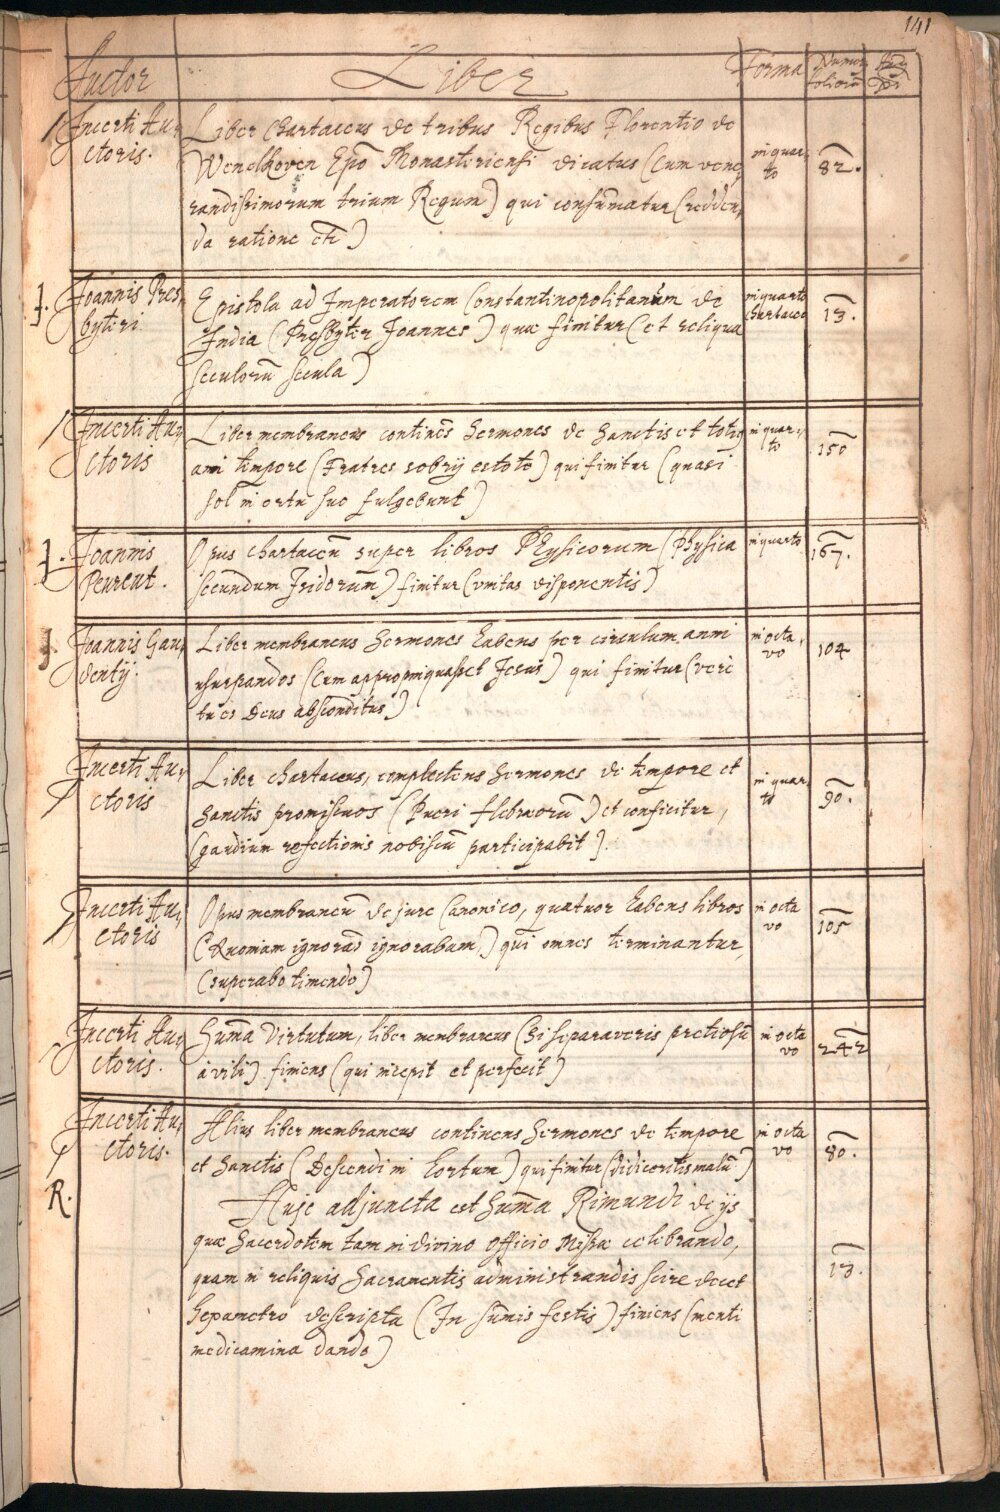 141
Auctor Liber Forma Numer
foliorũ
Incerti Au-
ctoris.
Liber chartaceus de tribus Regibus Florentio de
Wenelkoven Epõ Monasteriensi dicatus (Cum vene-
randissimorum trium Regum) qui consũmatur (redden-
da ratione etc̃)
in quar-
to
82.
J.
Joannis Pres-
byteri
Epistola ad Imperatorem Constantinopolitanum de
India (Presbyter Joannes) quæ finitur (et reliqua
seculorũ secula)
in quarto
chartaceo
13.
Incerti Au-
ctoris
Liber membraneus continẽs Sermones de Sanctis et totiꝰ
ani tempore (Fratres sobrij estote) qui finitur (quasi
sol in ortu suo fulgebunt)
in quar-
to
150
J.
Joannis
Peureut.
Opus chartaceũ super libros Physicorum (Physica
secundum Isidorum) finitur (unitas disponentis)
in quarto
167.
J.
Joannis Gau-
dentij.
Liber membraneus Sermones habens per circulum anni
usurpandos (Cum appropinquasset Jesus) qui finitur (verè
tu es Deus absconditus)
in octa-
vo
104
Incerti Au-
ctoris
Liber chartaceus, complectens Sermones de tempore et
Sanctis promiscuos (Pueri Hebræorũ) et conficitur,
(gaudium refectionis nobiscũ participabit).
in quar-
to
90.
Incerti Au-
ctoris
Opus membraneũ de jure Canonico, quatuor habens libros
(Quoniam ignorãs ignorabam) qui omnes terminantur,
(superabo timendo)
in octa
vo
105
Incerti Au-
ctoris.
Sũma Virtutum, liber membraneus (Si separaveris pretiosũ
à vili) finiens (qui incepit et perfecit)
in octa
vo
242
Incerti Au-
ctoris.
Alius liber membraneus continens Sermones de tempore
et Sanctis (Descendi in hortum) qui finitur (didiceritis malũ)
in octa
vo
80.
R.
Huic adjuncta est Sũma Rimundi de ijs
quæ Sacerdotem tam in divino officio Missæ celebrando,
quam in reliquis Sacramentis administrandis scire decet
hexametro descripta (In sũmis festis) finiens (menti
medicamina dando)
13.